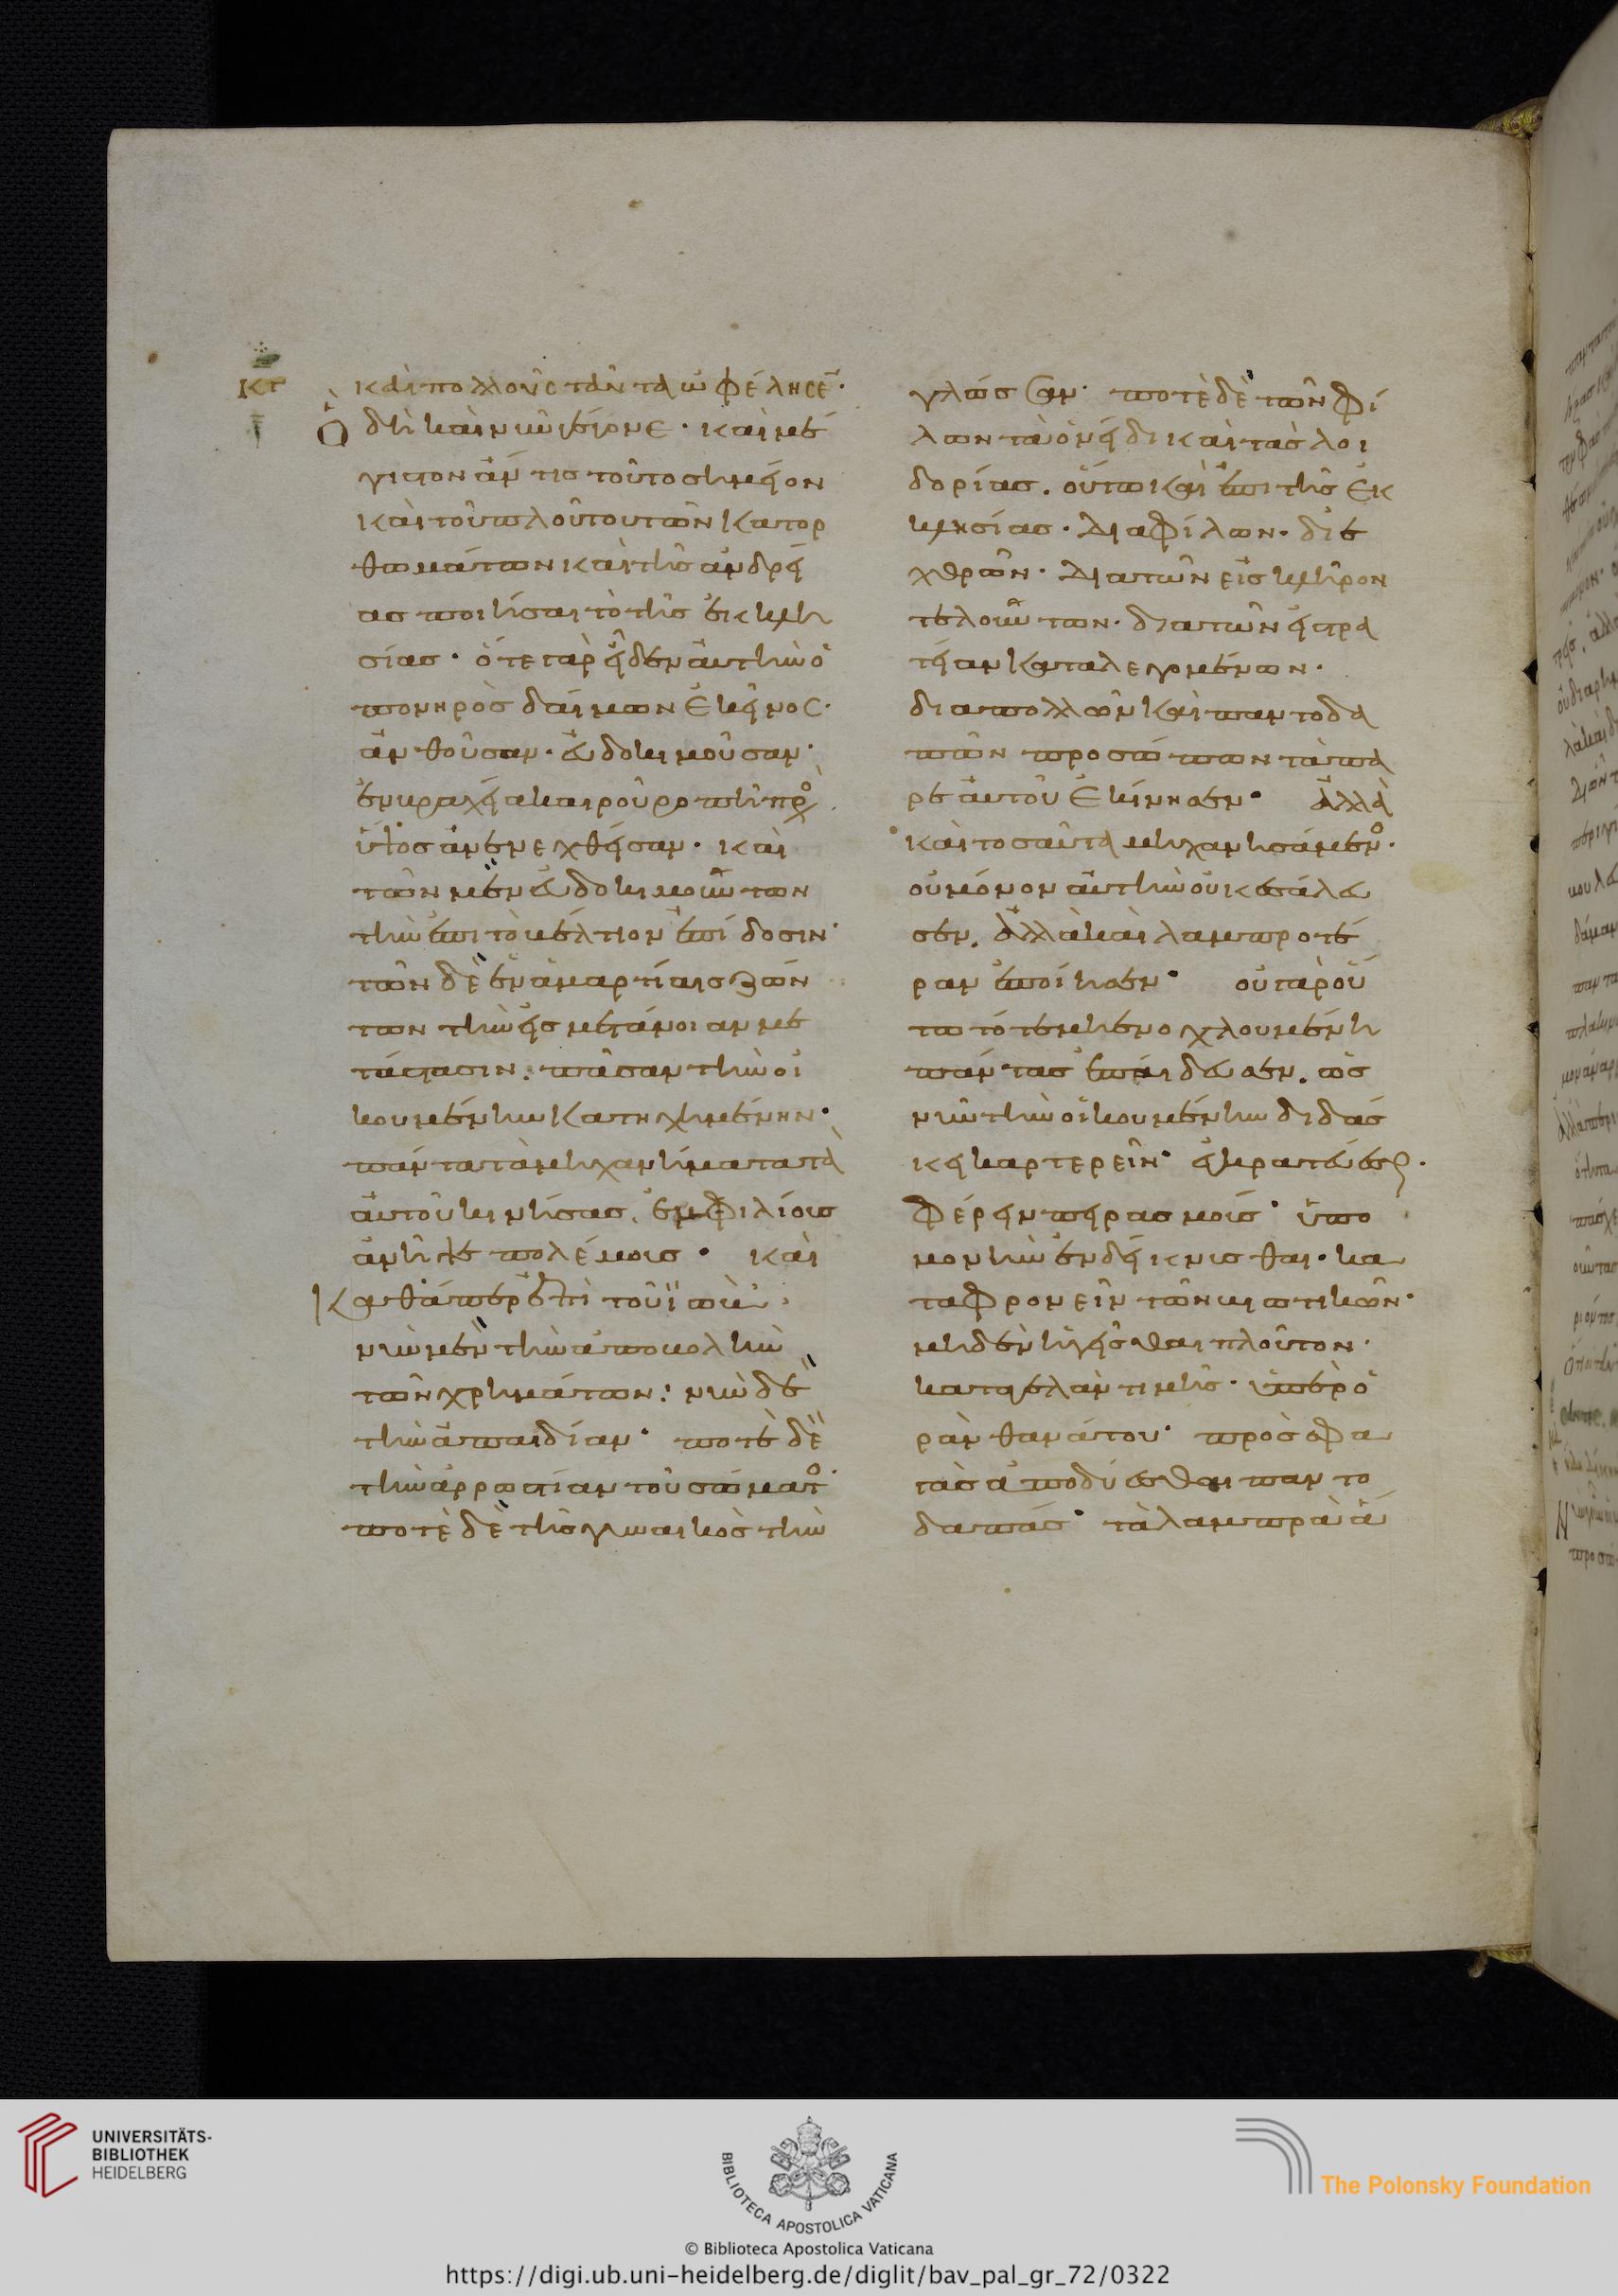 κγ
καὶ πολλοὺς ταῦτα ὠφέλησε̄·
ὃ δὴ καὶ νῦν γέγονε· καὶ μέ
γιστον ἄν τις τοῦτο σημεῖον
καὶ τοῦ πλούτου τῶν κατορ
θωμάτων καὶ τῆς ἀνδρεί
ας ποιήσαι τὸ τῆς ἐκκλη
σίας· ὅτε γὰρ εἶδεν αὐτὴν ὁ
πονηρὸς δαίμων ἐκεῖνος·
ἀνθοῦσαν· εὐδοκιμοῦσαν·
ἐν βραχεία καιροῦ ῥοπῆ πρὸς
ὕψος ἀνενεχθεῖσαν· καὶ
τῶν μὲν εὐδοκιμούντων
τὴν ἐπὶ τὸ βέλτιον ἐπίδοσιν·
τῶν δὲ ἐν ἁμαρτίαις ζών
των τὴν εἰς μετάνοιαν με
τάστασιν. πᾶσαν τὴν οἰ
κουμένην κατηχημένην·
πάντα τὰ μηχανήματα τὰ
αὐτοῦ κινήσας, ἐμφιλίους
ἀνῆψε πολέμους· καὶ
καθάπερ ἐπὶ τοῦ ϊώβ·
νῦν μὲν τὴν ἀποβολὴν
τῶν χρημάτων: νῦν δὲ
τὴν ἀπαιδίαν· ποτὲ δὲ
τὴν ἀρρωστίαν τοῦ σώματο·
ποτὲ δὲ τῆς γυναικὸς τὴν
γλῶσσαν· ποτὲ δὲ τῶν φί
λων τὰ ὀνείδη καὶ τὰς λοι
δορίας. οὕτω καὶ ἐπὶ τῆς ἐκ
κλησίας· διὰ φίλων· δι' ἐ
χθρῶν· διὰ τῶν εἰς κλῆρον
τελούντων· διὰ τῶν εἰς στρα
τείαν καταλεγομένων·
διὰ πολλῶν καὶ παντοδα
πῶν προσώπων τὰ πα
ρ' ἑαυτοῦ ἐκίνησεν· ἀλλὰ
καὶ τοσαῦτα μηχανησάμενο·
οὐ μόνον αὐτὴν οὐκ ἐσάλευ
σεν, ἀλλὰ καὶ λαμπροτέ
ραν ἐποίησεν· οὐ γὰρ οὕ
τω τότε μὴ ἐνοχλουμένη
πάντας ἐπαίδευσεν, ὡς
νῦν τὴν οἰκουμένην διδάσ
κει καρτερεῖν· ἐγκρατεύεσθαι·
φέρειν πειρασμοῖς· ὑπο
μονὴν ἐνδείκνυσθαι· κα
ταφρονεῖν τῶν βιωτικῶν·
μηδὲν ἡγεῖσθαι πλοῦτον·
καταγελᾶν τιμῆς· ὑπερο
ρᾶν θανάτου· πρὸς σφα
γὰς ἀποδύεσθαι παντο
δαπάς· τὰ λαμπρὰ ἀ
UNIVERSITÄTS-
BIBLIOTHEK
HEIDELBERG
BIBLIOTECA APOSTOLICA VATICANA
© Biblioteca Apostolica Vaticana
The Polonsky Foundation
https://digi.ub.uni-heidelberg.de/diglit/bav_pal_gr_72/0322